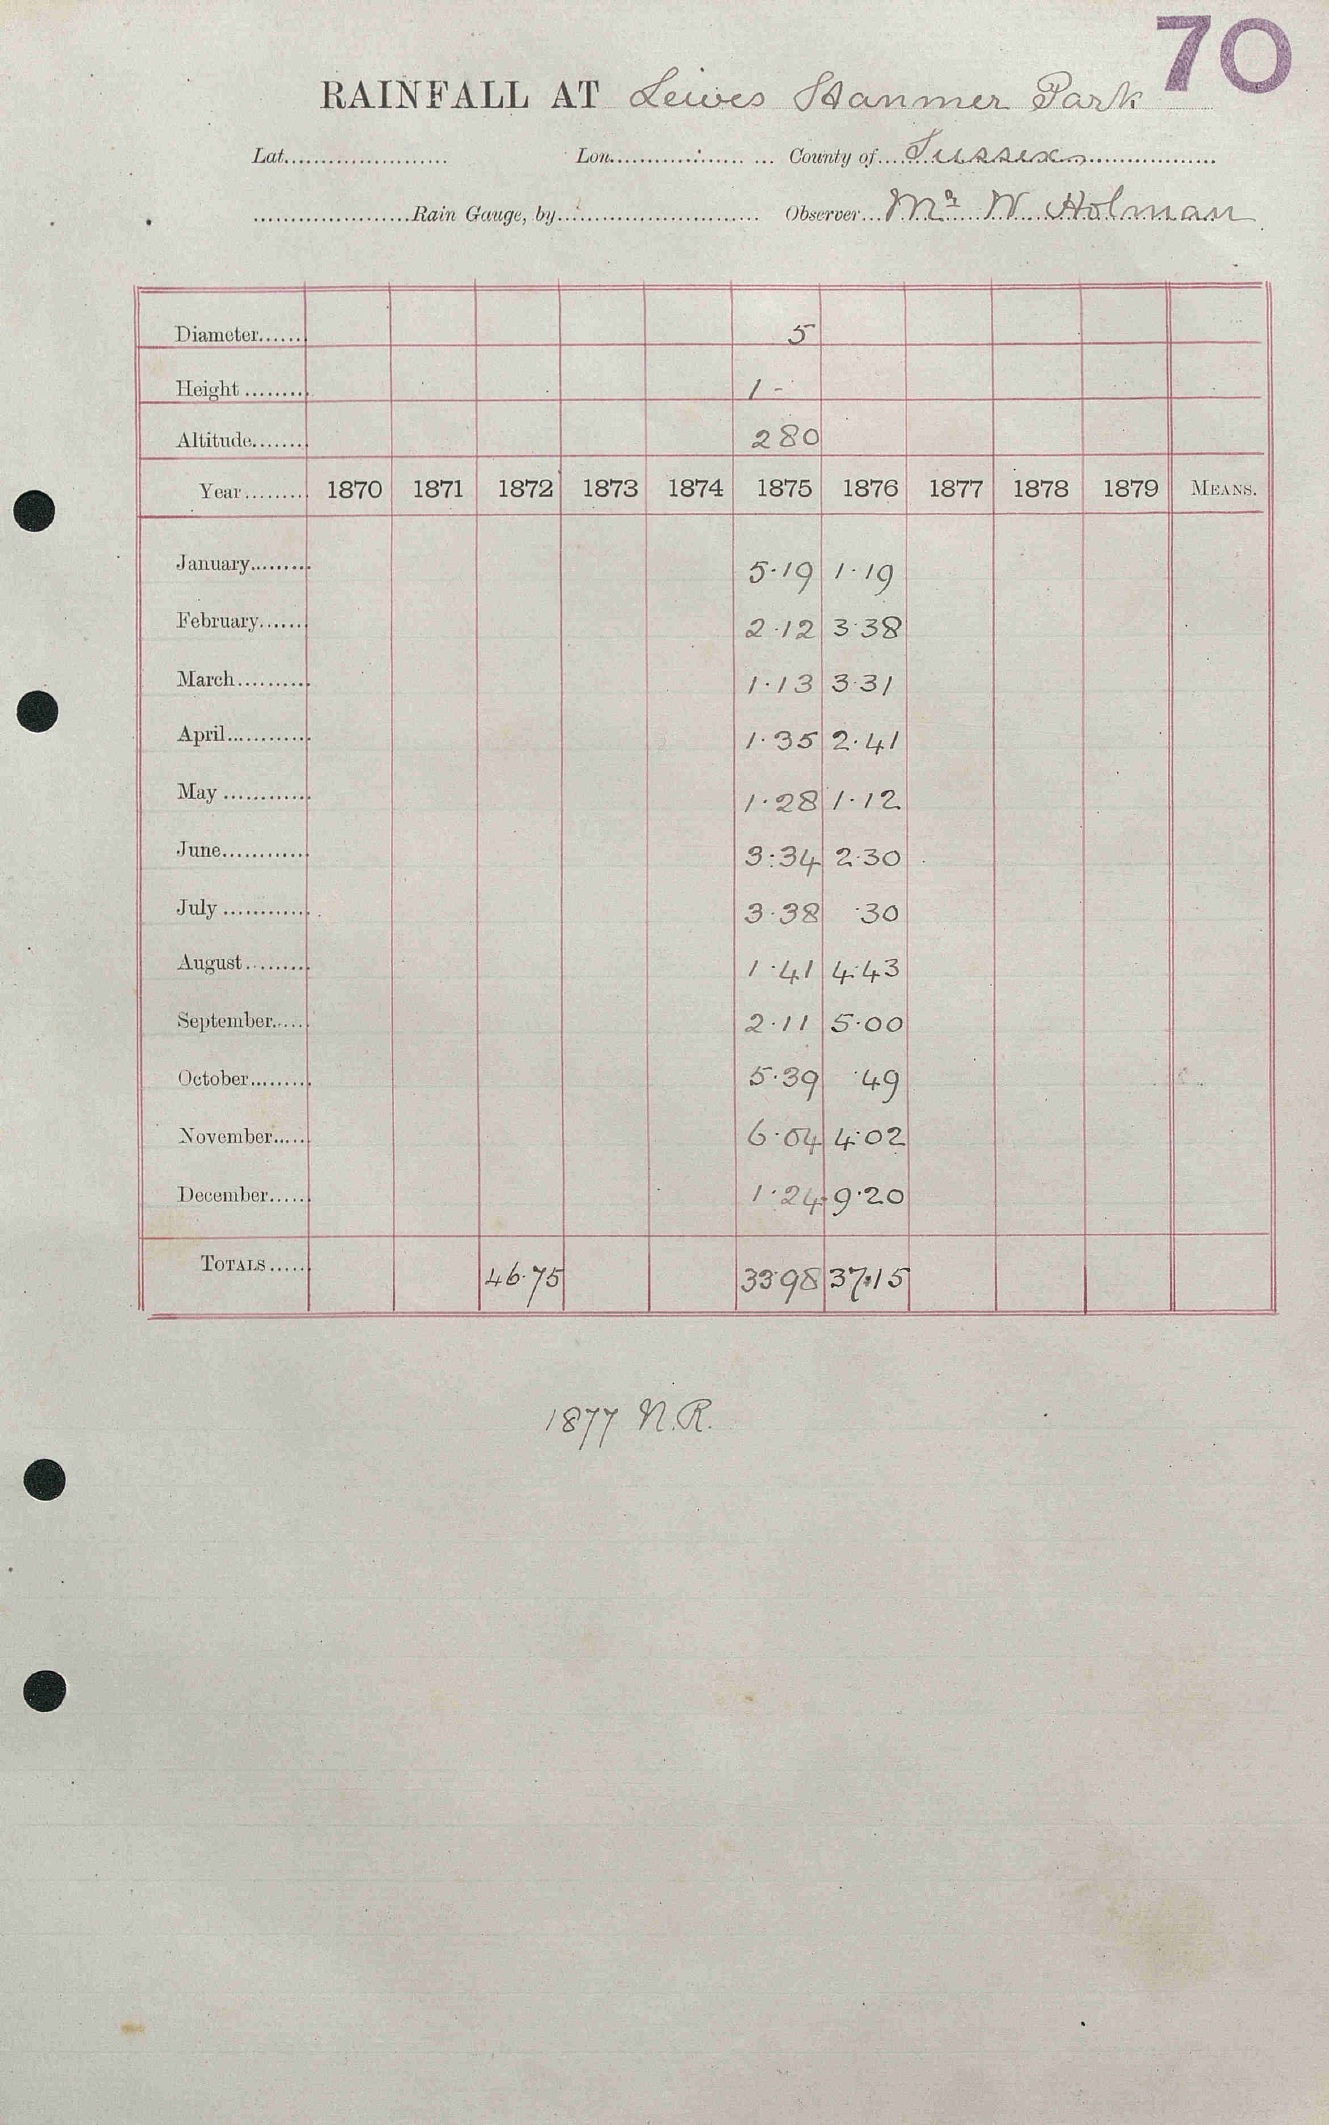 70
RAINFALL AT Lewes Stanmer Park
Lat. Lon. County of Sussex
Rain Gauge, by Observer Mr W Holman
Diameter 5
Height 1 -
Altitude 280
Year 1870 1871 1872 1873 1874 1875 1876 1877 1878 1879 MEANS.
January 5·19 1·19
February 2·12 3·38
March 1·13 3·31
April 1·35 2·41
May 1·28 1·12
June 3·34 2·30
July 3·38 ·30
August 1·41 4·43
September 2·11 5·00
October 5·39 ·49
November 6·04 4·02
December 1·24 9·20
TOTALS 46·75 33·98 37·15
1877 N.R.